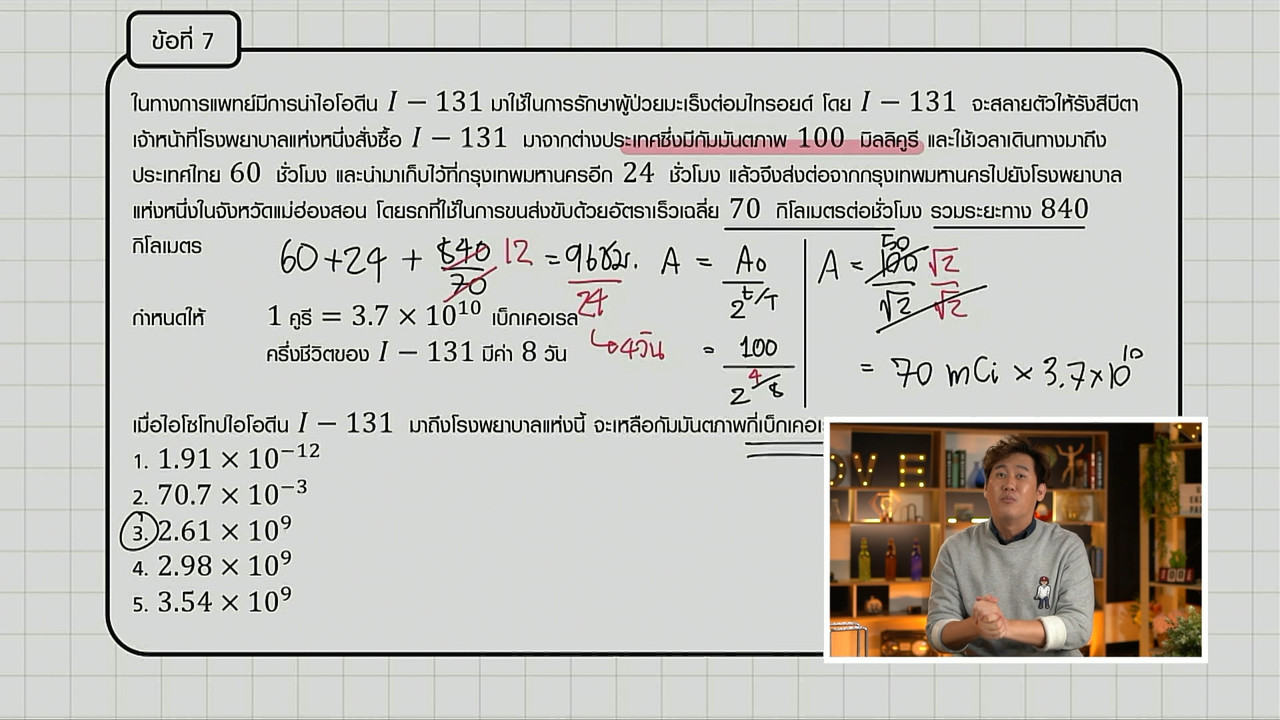 ข้อที่ 7
ในทางการแพทย์มีการนำไอโอดีน I − 131 มาใช้ในการรักษาผู้ป่วยมะเร็งต่อมไทรอยด์ โดย I − 131 จะสลายตัวให้รังสีบีตา
เจ้าหน้าที่โรงพยาบาลแห่งหนึ่งสั่งซื้อ I − 131 มาจากต่างประเทศซึ่งมีกัมมันตภาพ 100 มิลลิคูรี และใช้เวลาเดินทางมาถึง
ประเทศไทย 60 ชั่วโมง และนำมาเก็บไว้ที่กรุงเทพมหานครอีก 24 ชั่วโมง แล้วจึงส่งต่อจากกรุงเทพมหานครไปยังโรงพยาบาล
แห่งหนึ่งในจังหวัดแม่ฮ่องสอน โดยรถที่ใช้ในการขนส่งขับด้วยอัตราเร็วเฉลี่ย 70 กิโลเมตรต่อชั่วโมง รวมระยะทาง 840
กิโลเมตร
60+24 + 840/70 12 = 96ชม./24
↳4วัน
A = A₀/2^(t/T)
= 100/2^(4/8)
A = 100/√2 √2/√2
50
= 70 mCi × 3.7×10¹⁰
กำหนดให้ 1 คูรี = 3.7 × 10¹⁰ เบ็กเคอเรล
ครึ่งชีวิตของ I − 131 มีค่า 8 วัน
เมื่อไอโซโทปไอโอดีน I − 131 มาถึงโรงพยาบาลแห่งนี้ จะเหลือกัมมันตภาพกี่เบ็กเคอเ
1. 1.91 × 10⁻¹²
2. 70.7 × 10⁻³
3. 2.61 × 10⁹
4. 2.98 × 10⁹
5. 3.54 × 10⁹
OVE